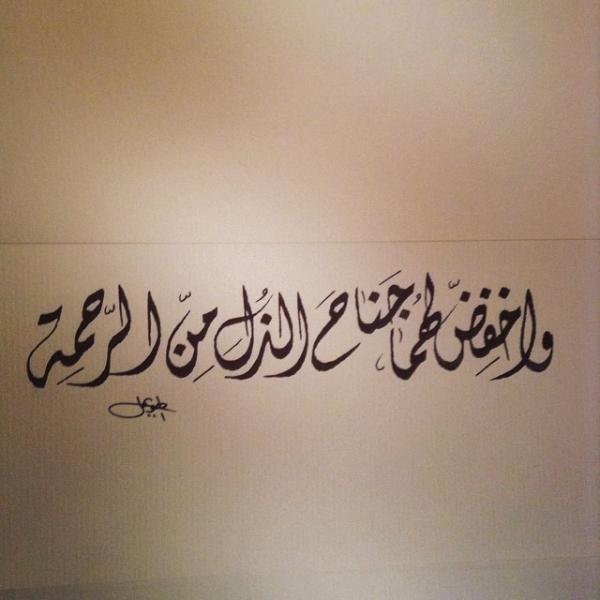 واخفِضّ لهُما جَناحَ الذُلِ مِنّ الرّحمِة